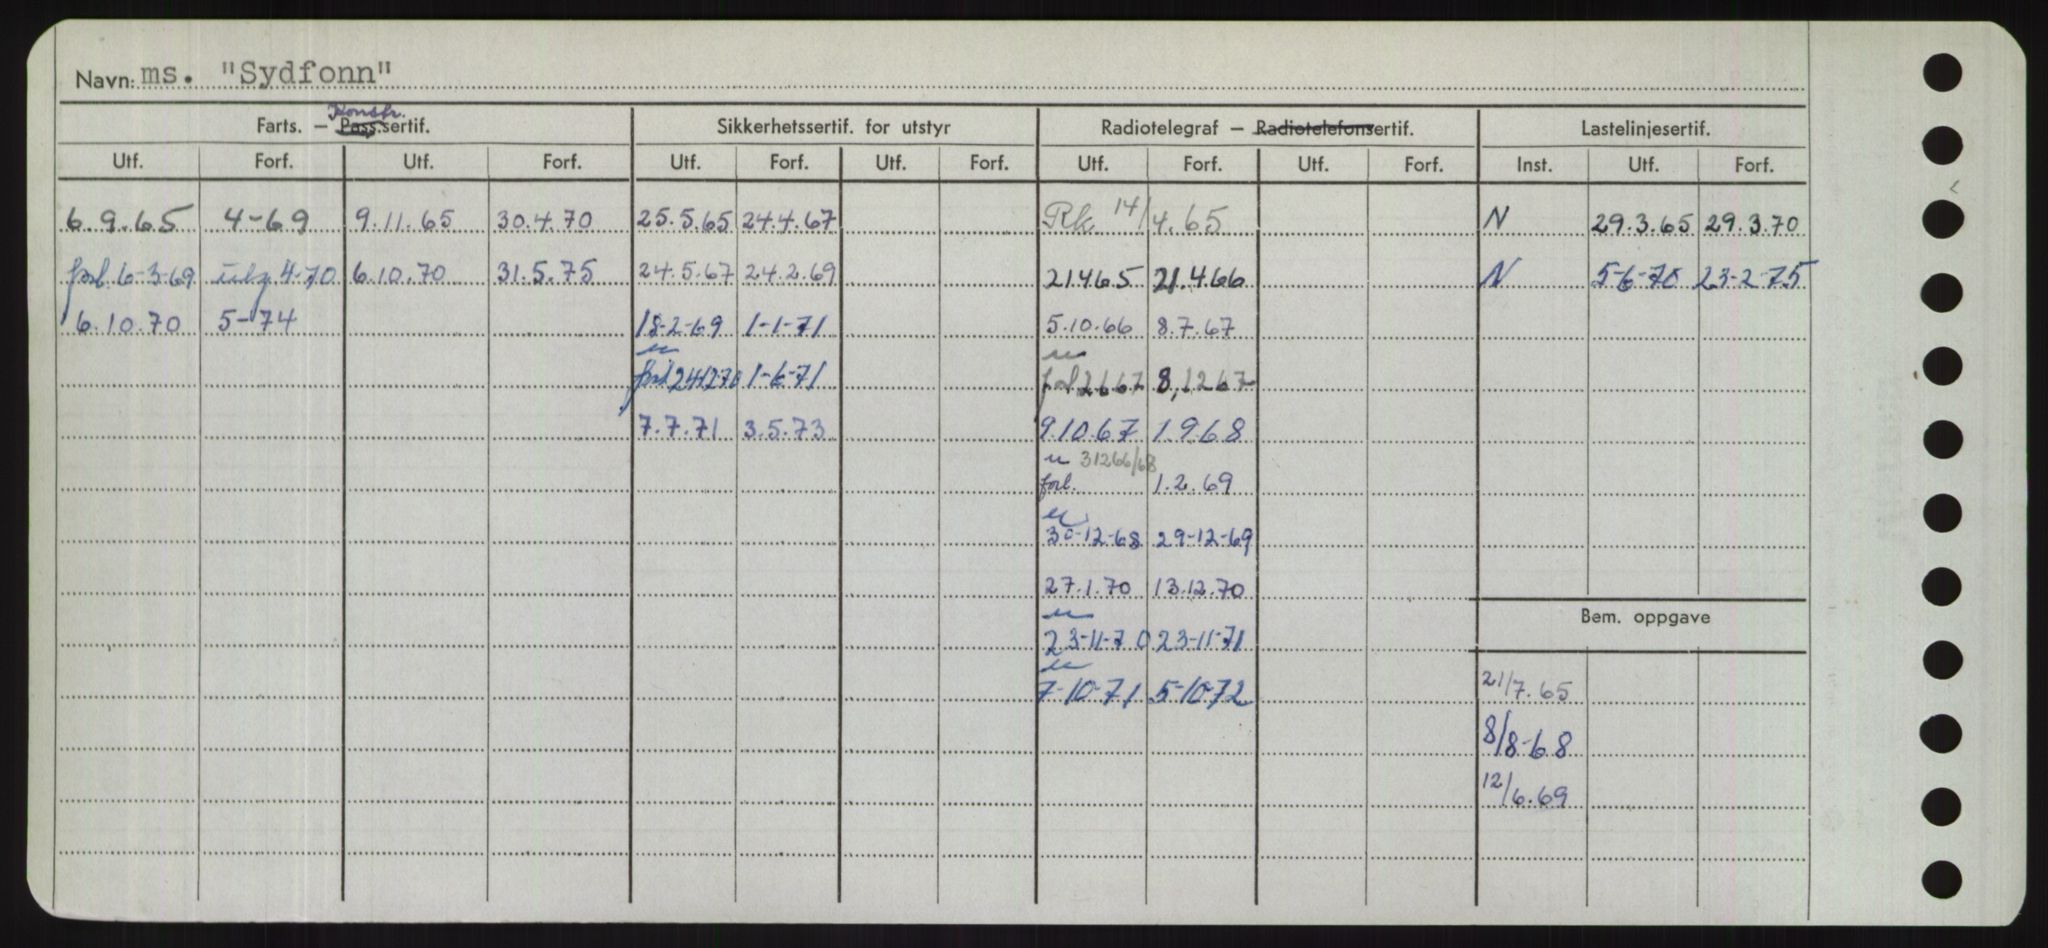 Navn: ms. "Sydfonn"
Konstr.
Farts. — Pass.sertif. Sikkerhetssertif. for utstyr Radiotelegraf — Radiotelefonsertif. Lastelinjesertif.
Utf. Forf. Utf. Forf. Utf. Forf. Utf. Forf. Utf. Forf. Utf. Forf. Inst. Utf. Forf.
6.9.65 4-69 9.11.65 30.4.70 25.5.65 24.4.67 Rk 14/4.65 N 29.3.65 29.3.70
forl 6-3-69 4-70 6.10.70 31.5.75 24.5.67 24.2.69 21465 21.4.66 N 5-6-70 23-2-75
6.10.70 5-74 18-2-69 1-1-71 5.10.66 8.7.67
forl 241270 1-6-71 forl 2667 8,1267
7.7.71 3.5.73 9.10.67 1.9.68
31266/68
forl. 1.2.69
30-12-68 29-12-69
27.1.70 13.12.70
Bem. oppgave
23-11-70 23-11-71
7-10-71 5-10-72 21/7.65
8/8-68
12/6.69